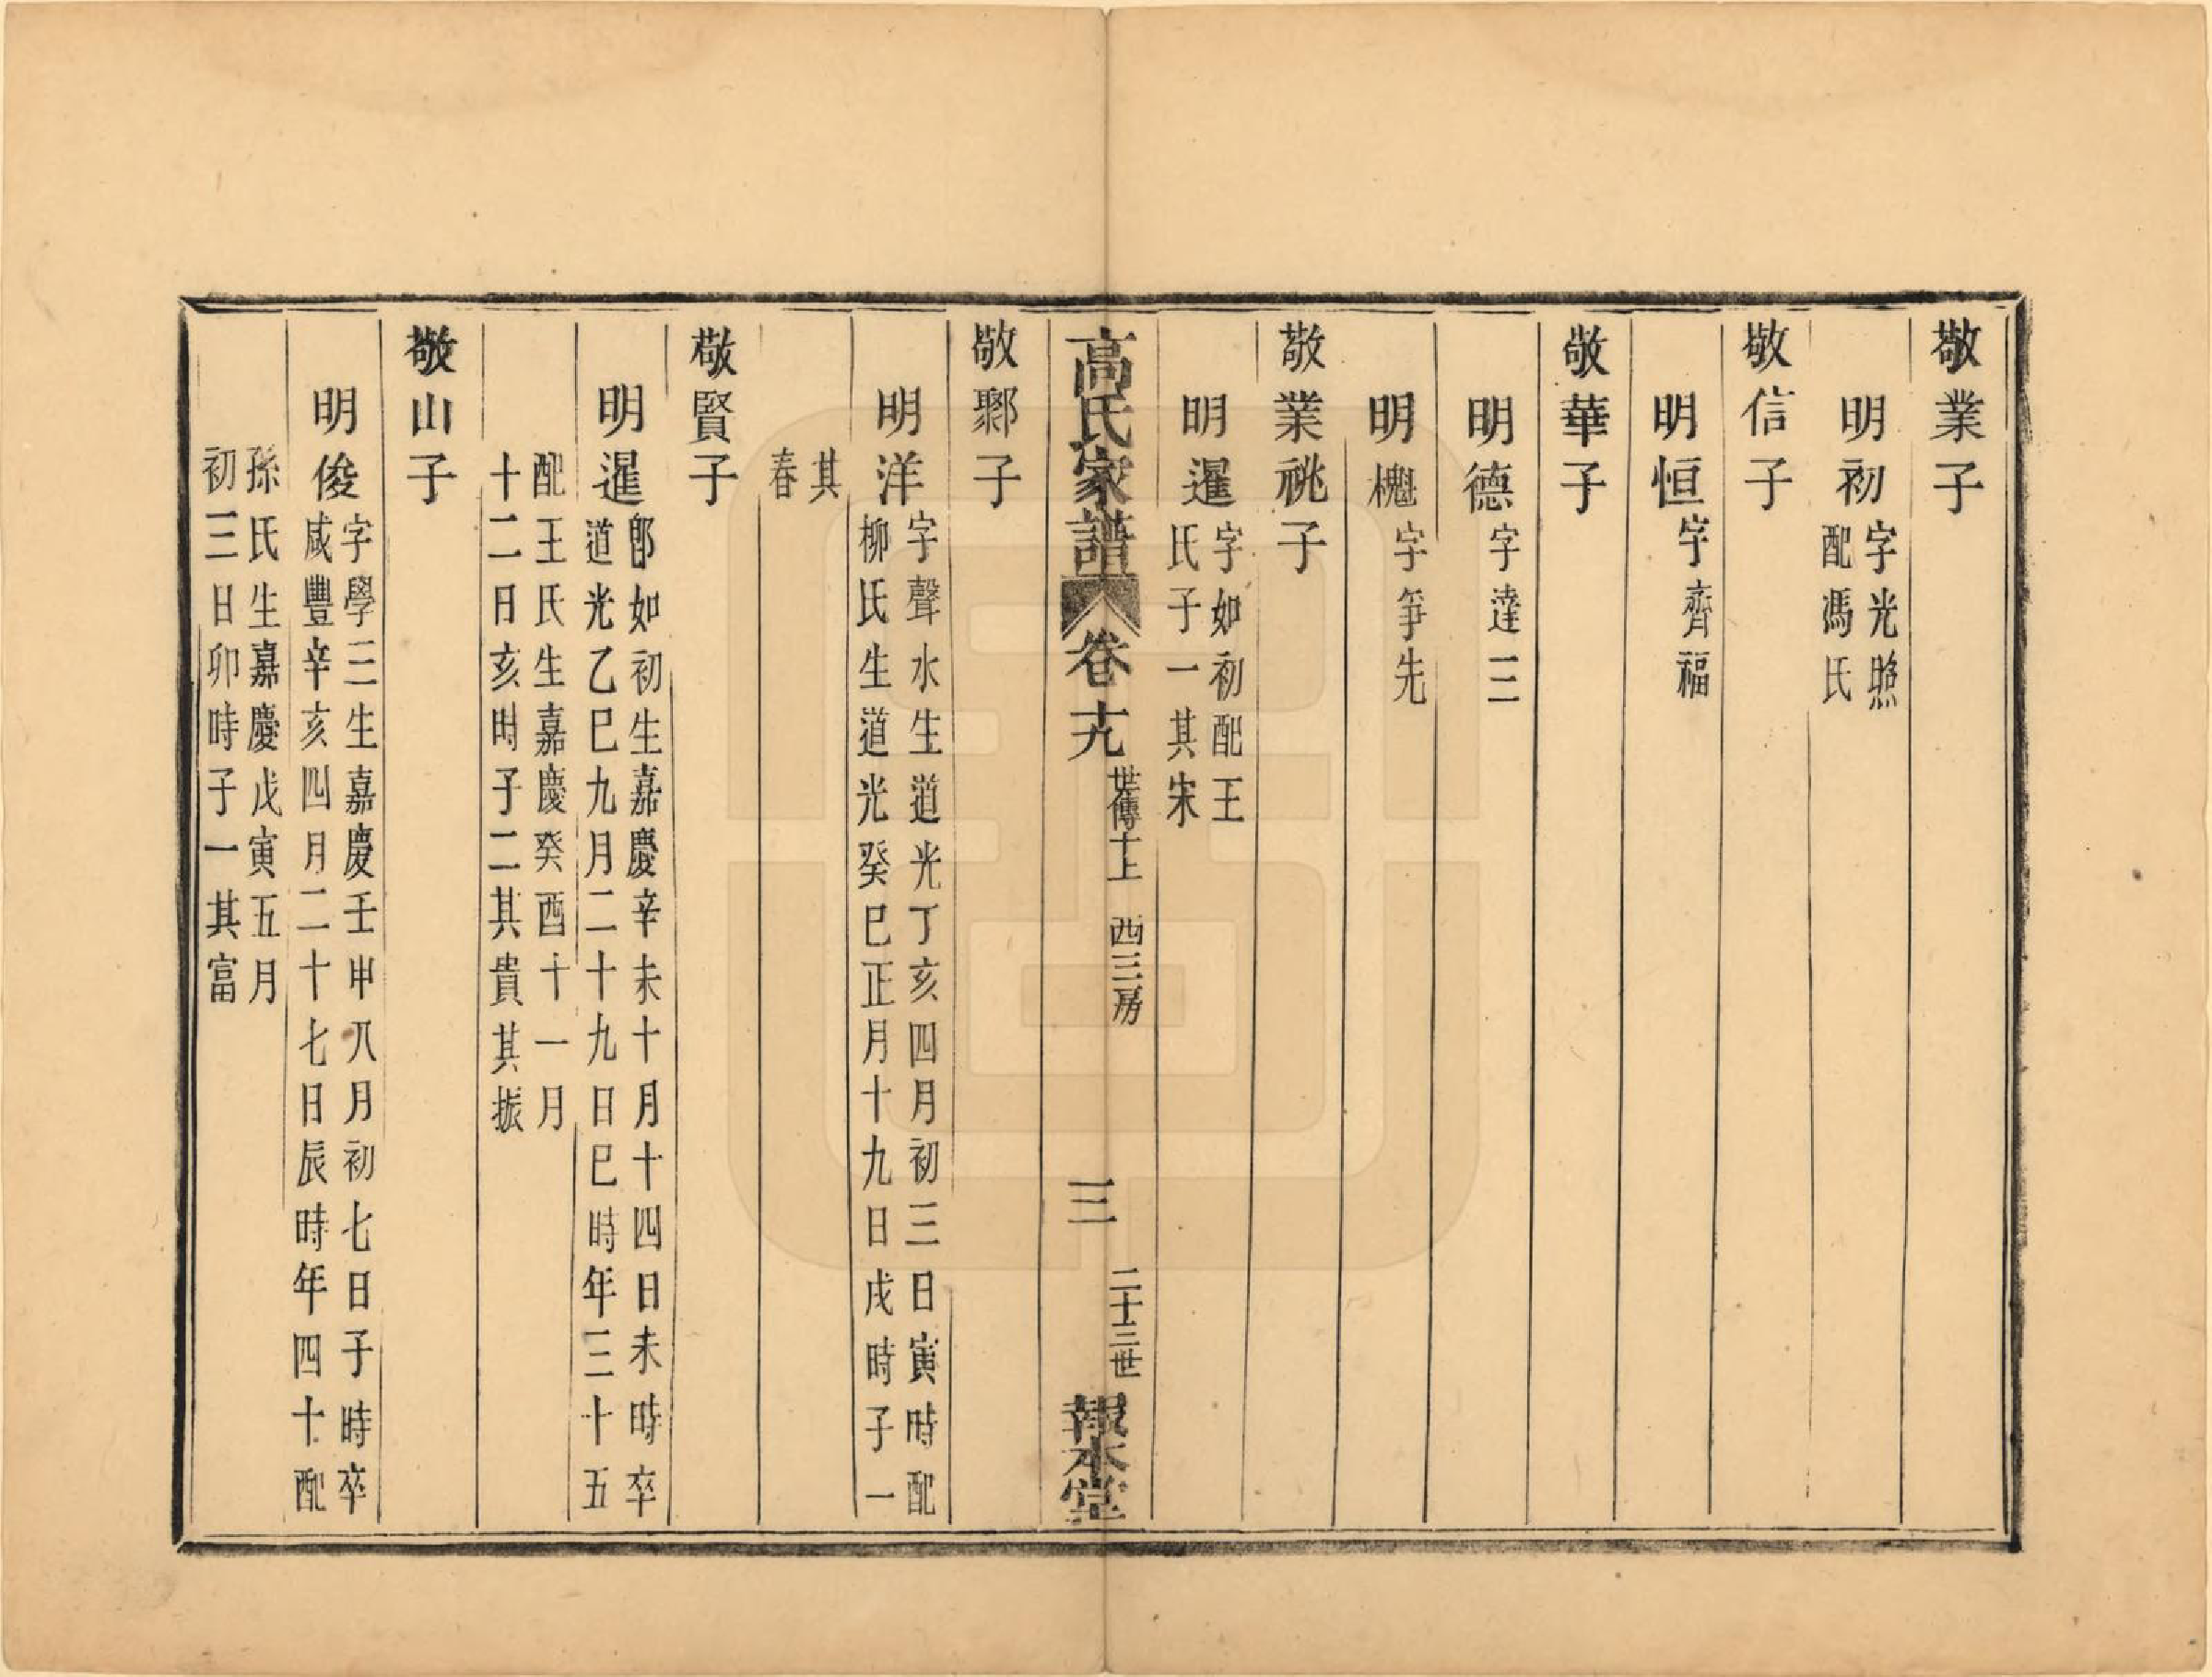 敬業子
明初 字光照
配馮氏
敬信子
明恒 字齊福
敬華子
明德 字達三
明槐 字爭先
敬業祧子
明暹 字如初配王
氏子一其宋
高氏家譜 卷十九 世傳十上 西三房 三 二十三世 報本堂
敬鄹子
明洋 字聲水生道光丁亥四月初三日寅時配
柳氏生道光癸巳正月十九日戌時子一
其
春
敬賢子
明暹 郎如初生嘉慶辛未十月十四日未時卒
道光乙巳九月二十九日巳時年三十五
配王氏生嘉慶癸酉十一月
十二日亥時子二其貴其振
敬山子
明俊 字學三生嘉慶壬申八月初七日子時卒
咸豐辛亥四月二十七日辰時年四十配
孫氏生嘉慶戊寅五月
初三日卯時子一其富